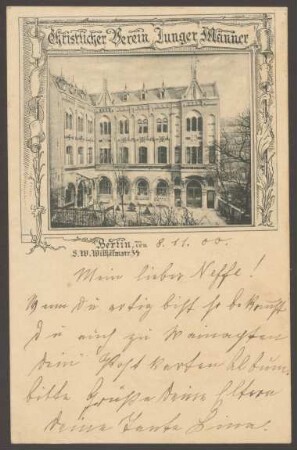 Christlicher Verein Junger Männer
Berlin, den 8. 11. 00.
S.W. Wilhelmstr. 34
Mein lieber Neffe!
Wenn Du artig bist so bekomst
Du auch zu Weinachten
dein Postkarten Album.
bitte Grüße Deine Eltern
deine Tante Lina.